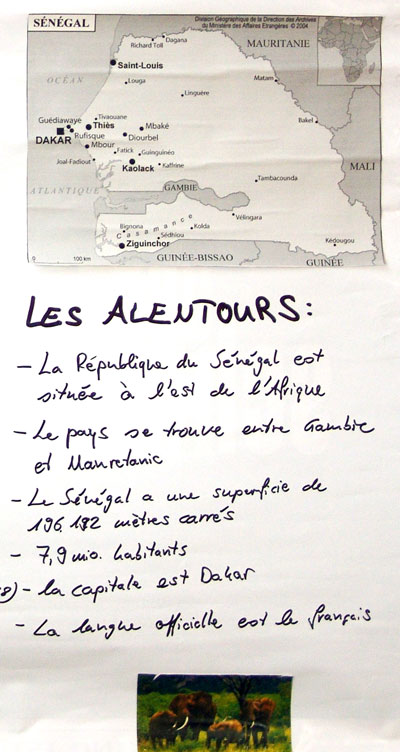 SÉNÉGAL
Division Géographique de la Direction des Archives
du Ministère des Affaires Etrangères © 2004
Dagana
Richard Toll
MAURITANIE
Saint-Louis
OCÉAN
Louga
Matam
Linguère
Bakel
Tivaouane
Guédiawaye
Thiès
Mbaké
DAKAR
Rufisque
Diourbel
Mbour
Fatick
Guinguinéo
Joal-Fadiout
Kaolack
Kaffrine
MALI
Tambacounda
ATLANTIQUE
GAMBIE
Vélingara
Casamance
Bignona
Kolda
Sédhiou
Ziguinchor
Kédougou
0 100 km
GUINÉE-BISSAO
GUINÉE
LES ALENTOURS:
- La République du Sénégal est
située à l'est de l'Afrique
- Le pays se trouve entre Gambie
et Mauretanie
- Le Sénégal a une superficie de
196.192 mètres carrés
- 7,9 mio. habitants
8) - la capitale est Dakar
- La langue officielle est le français